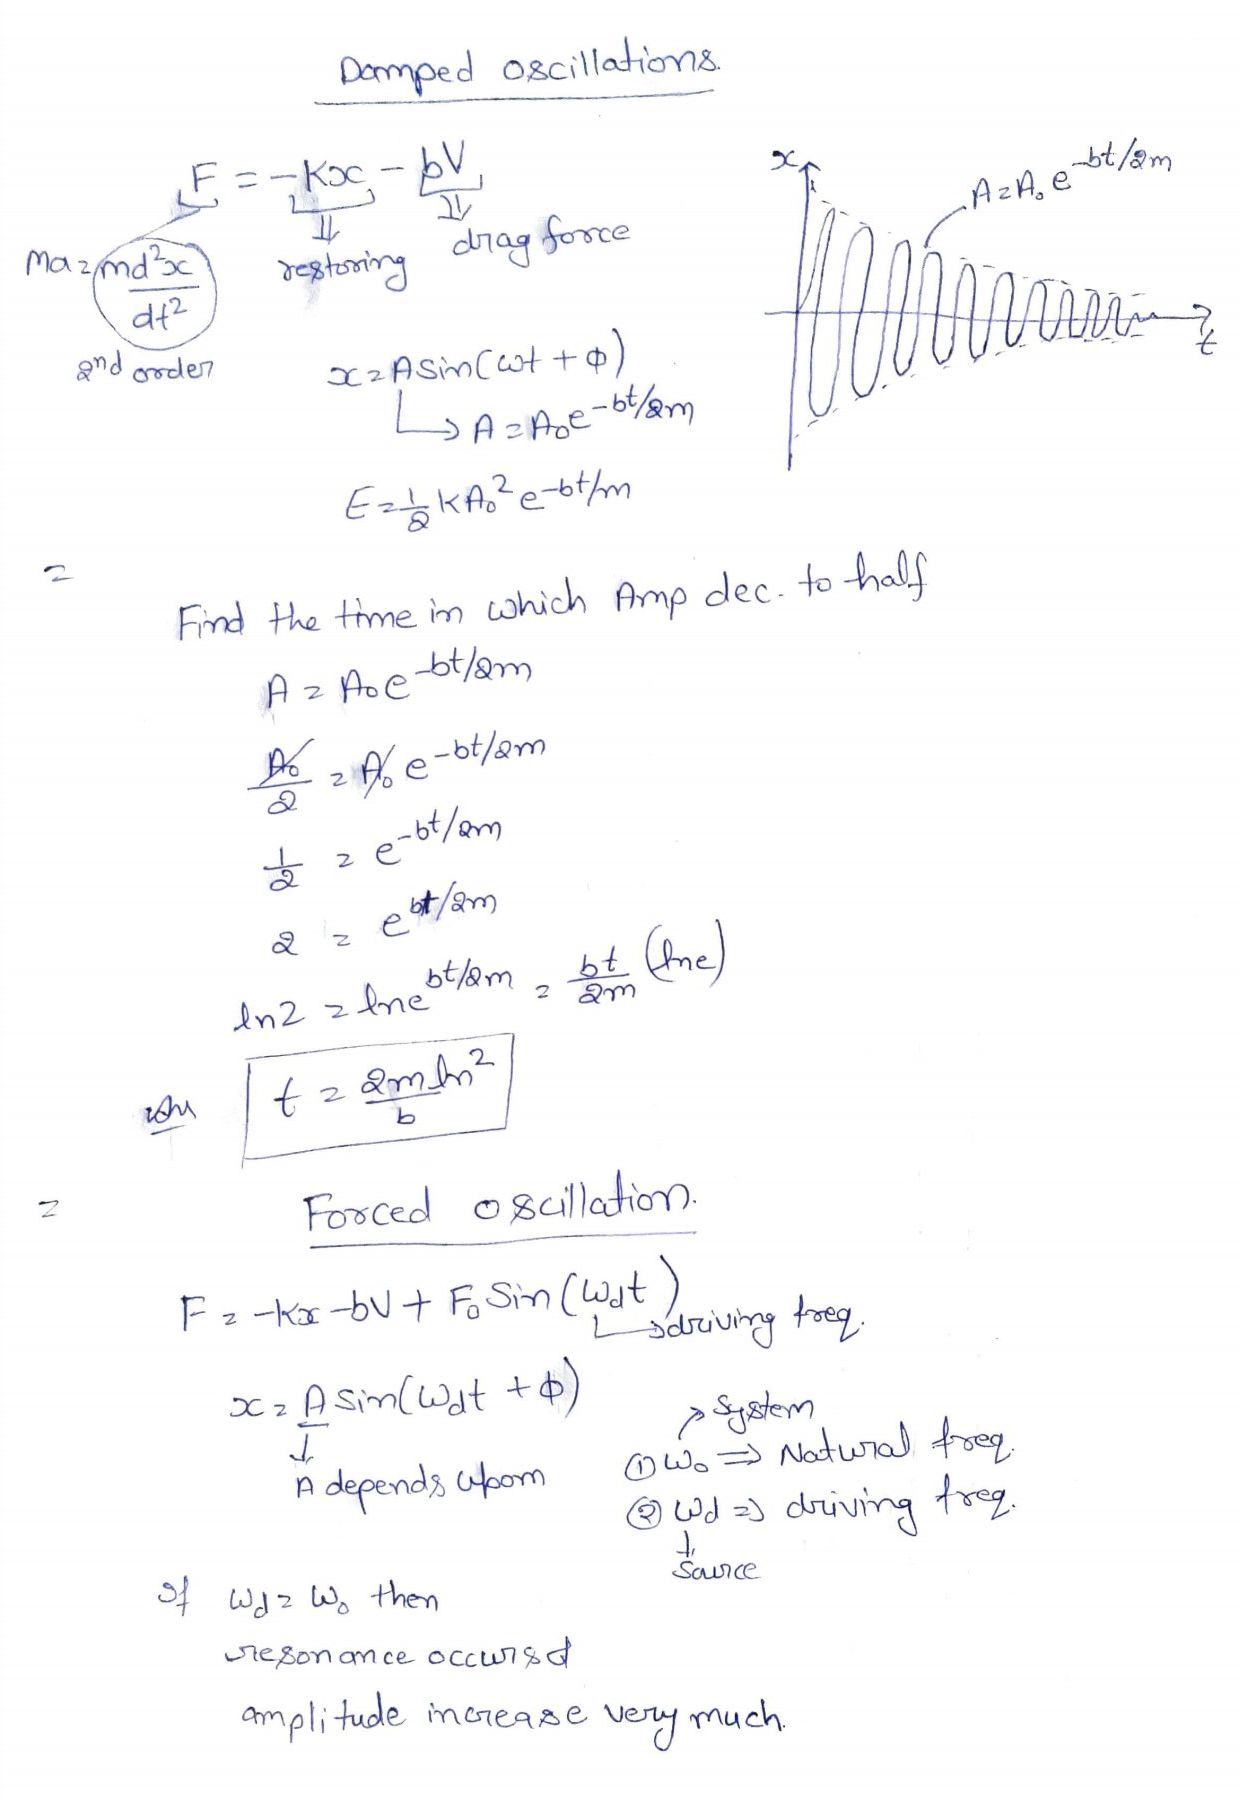 Damped oscillations.
F = -Kx - bV
restoring drag force
ma = md²x/dt²
2nd order
x
A = A₀e^-bt/2m
t
x = A sin(ωt + φ)
A = A₀e^-bt/2m
E = 1/2 KA₀² e^-bt/m
=
Find the time in which Amp dec. to half
A = A₀e^-bt/2m
A₀/2 = A₀ e^-bt/2m
1/2 = e^-bt/2m
2 = e^bt/2m
ln2 = lne^bt/2m = bt/2m (lne)
t = 2m ln2/b
=
Forced oscillation.
F = -Kx - bV + F₀ Sin(ωdt)
driving freq.
x = A sin(ωdt + φ)
A depends upon
System
① ω₀ ⇒ Natural freq.
② ωd ⇒ driving freq.
Source
If ωd = ω₀ then
resonance occurs d
amplitude increase very much.